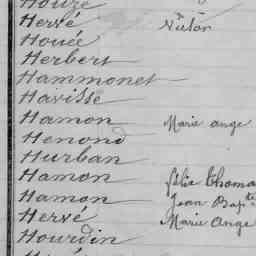 Houzé
Hervé Victor
Houée
Herbert
Hammonet
Havisse
Hamon Marie ange
Henond
Hurban
Hamon félix Thoma
Hamon Jean Bapte
Hervé Marie Ange
Hourdin